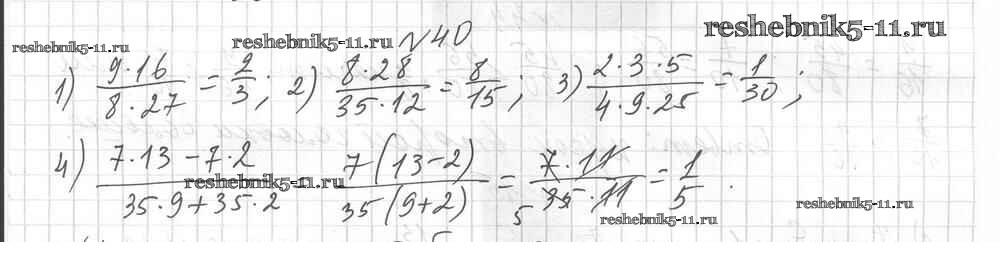 reshebnik5-11.ru
reshebnik5-11.ru
reshebnik5-11.ru
№40
1) 9·16/8·27 = 2/3; 2) 8·28/35·12 = 8/15; 3) 2·3·5/4·9·25 = 1/30;
4) 7·13-7·2/35·9+35·2 7(13-2)/35(9+2) = 7·11/35·11 = 1/5.
5
reshebnik5-11.ru
reshebnik5-11.ru
reshebnik5-11.ru